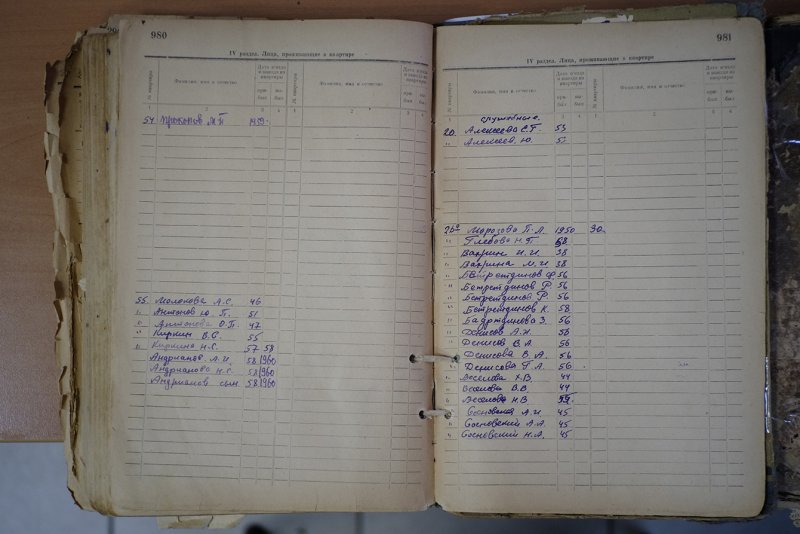 980
IV раздел. Лица, проживающие в квартире
№ квартиры
Фамилия, имя и отчество
Дата въезда и выезда из квартиры
при-был
вы-был
№ квартиры
Фамилия, имя и отчество
1 2 3 4 1 2 3 4
54 Прокопов М П
55. Молокова А.С. 46
" Антонов Ю. П. 51
" Антонова О.П. 47
" Киркин В.С. 55
" Киркина Н.С. 57 58
Андрианов А.И 58 1960
Андрианова Н.С. 58 1960
Андрианов сын 58 1960
981
IV раздел. Лица, проживающие в квартире
№ квартиры
Фамилия, имя и отчество
Дата въезда и выезда из квартиры
при-был
вы-был
№ квартиры
Фамилия, имя и отчество
при-был
вы-был
1 3 4 1 2 3 4
служебные.
20. Алексеева С.Г. 53
" Алексеев. Ю.
Морозова П.А. 1950 30
" Глебова Н.П 58
" Вахрин И.И 38
" Вахрина М.И 38
" Бетретдинов Ф 56
" Бетретдинов Р. 56
" Бетретдинов Р. 56
" Бетретдинов К. 58
" Бадртдинова З. 56
" Денисов А.И. 58
" Денисов В.А 56
" Денисова В.А. 56
" Денисова Г.А. 56
" Веселова Х.В. 44
" Веселова В.В. 44
" Веселова Н.В
" А.И. 45
" Сосновский А.А. 45
" Сосновский Н.А. 45